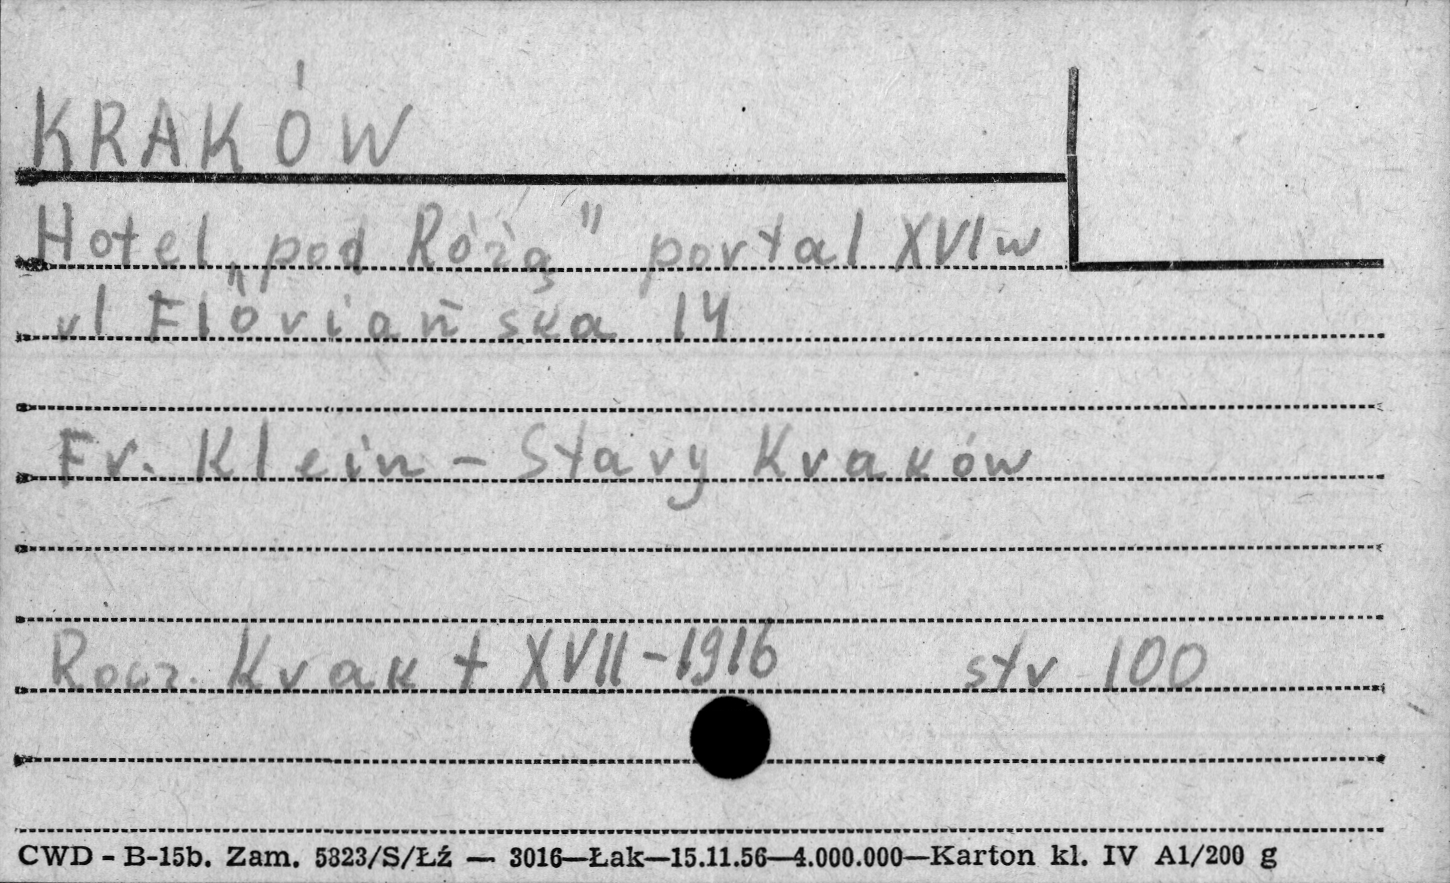 KRAKÓW
Hotel „pod Różą" portal XVI w
ul Floriańska 14
Fr. Klein - Stary Kraków
Rocz. Krak t XVII - 1916 str 100
CWD - B-15b. Zam. 5323/S/Łź — 3016—Łak—15.11.56—4.000.000—Karton kl. IV A1/200 g